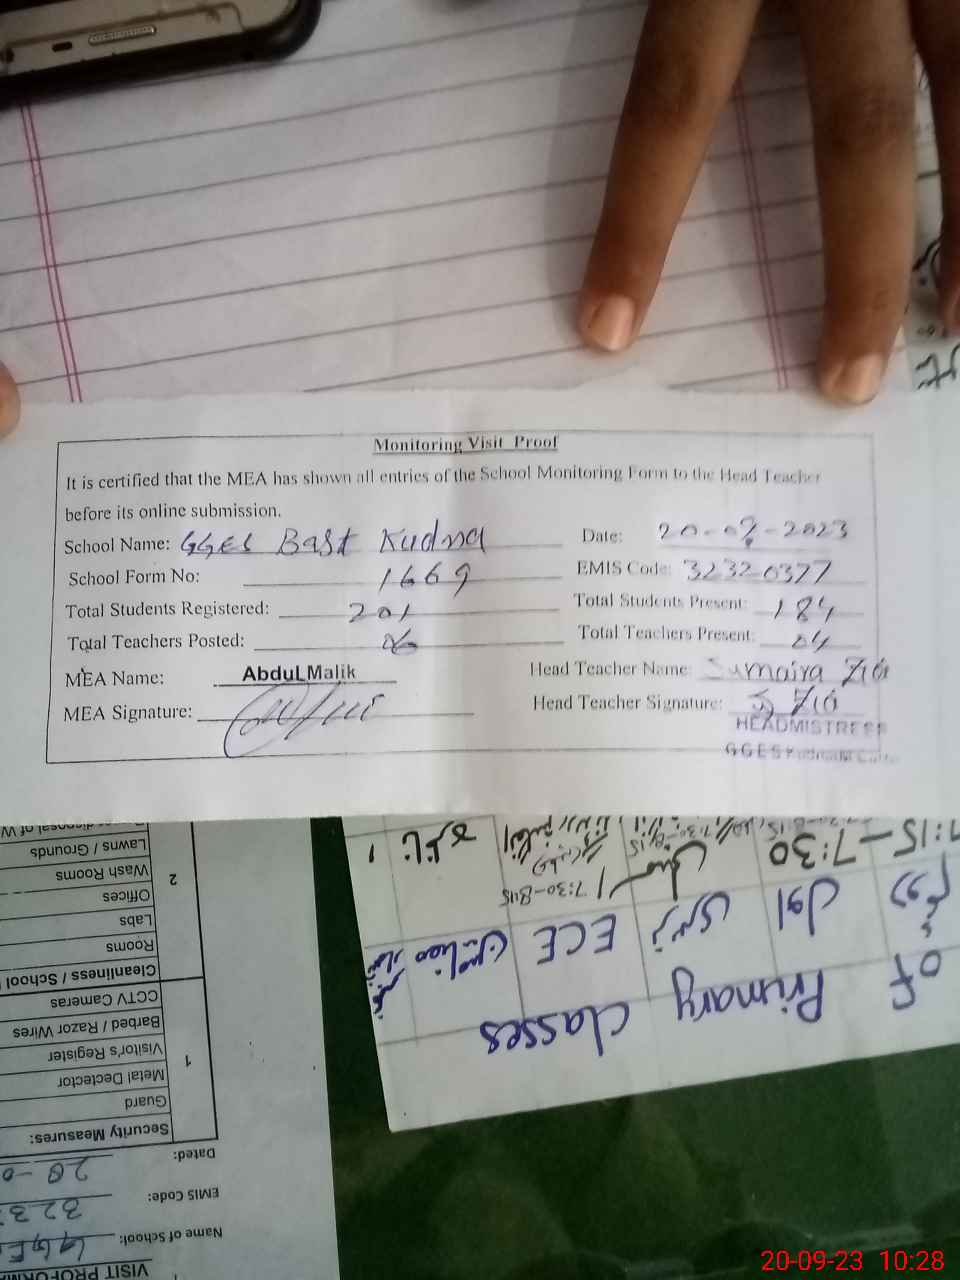 Monitoring Visit Proof
It is certified that the MEA has shown all entries of the School Monitoring Form to the Head Teacher
before its online submission.
School Name: GGES Bast Kudna Date: 20-09-2023
School Form No: 1669 EMIS Code: 32320377
Total Students Registered: 201 Total Students Present: 184
Total Teachers Posted: 06 Total Teachers Present: 04
MEA Name: Abdul Malik Head Teacher Name: Sumaira Zia
MEA Signature: Head Teacher Signature: S Zia
HEADMISTRESS
GGES
7:15-7:30
7:30-8:15
اول ECE
of Primary classes
VISIT PROFORMA
Name of School: GGE
EMIS Code: 323
Dated: 20-0
1 Security Measures:
Guard
Metal Dectector
Visitor's Register
Barbed / Razor Wires
CCTV Cameras
2 Cleanliness / School
Rooms
Labs
Offices
Wash Rooms
Lawns / Grounds
disposal of W
20-09-23 10:28